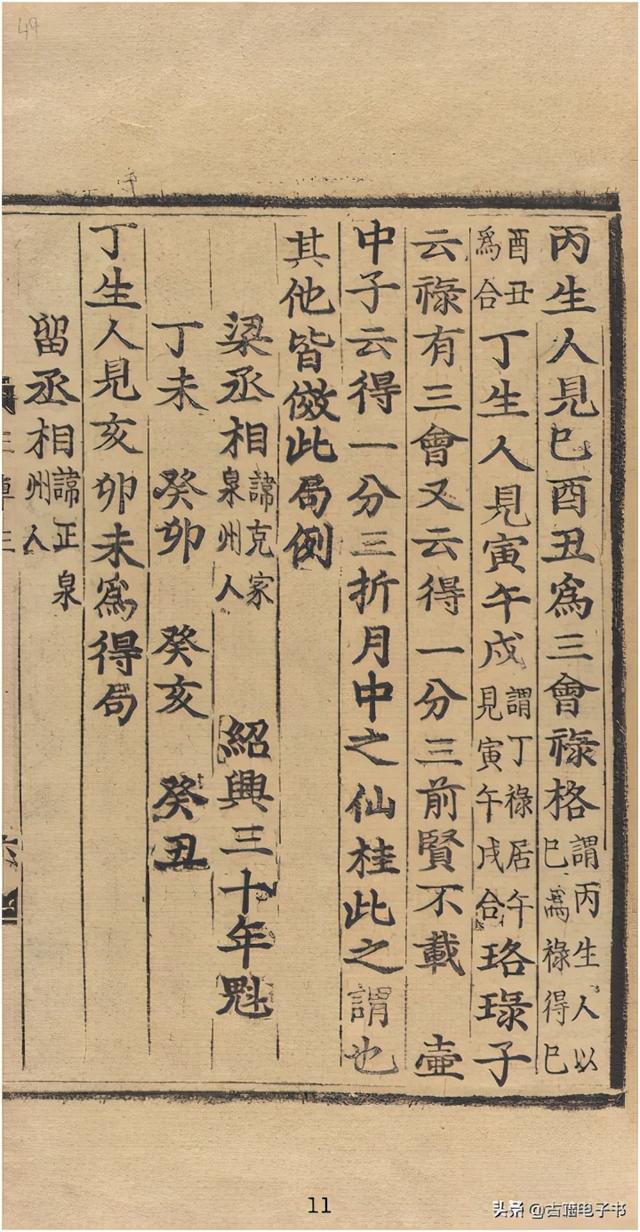 49
丙生人見巳酉丑為三會祿格謂丙生人以巳為祿得巳
酉丑為合丁生人見寅午戌謂丁祿居午見寅午戌合珞琭子
云祿有三會又云得一分三前賢不載 壺
中子云得一分三折月中之仙桂此之謂也
其他皆倣此局例
梁丞相諱克家泉州人 紹興三十年魁
丁未 癸卯 癸亥 癸丑
丁生人見亥卯未為得局
留丞相諱正泉州人
11
头条 @古籍电子书